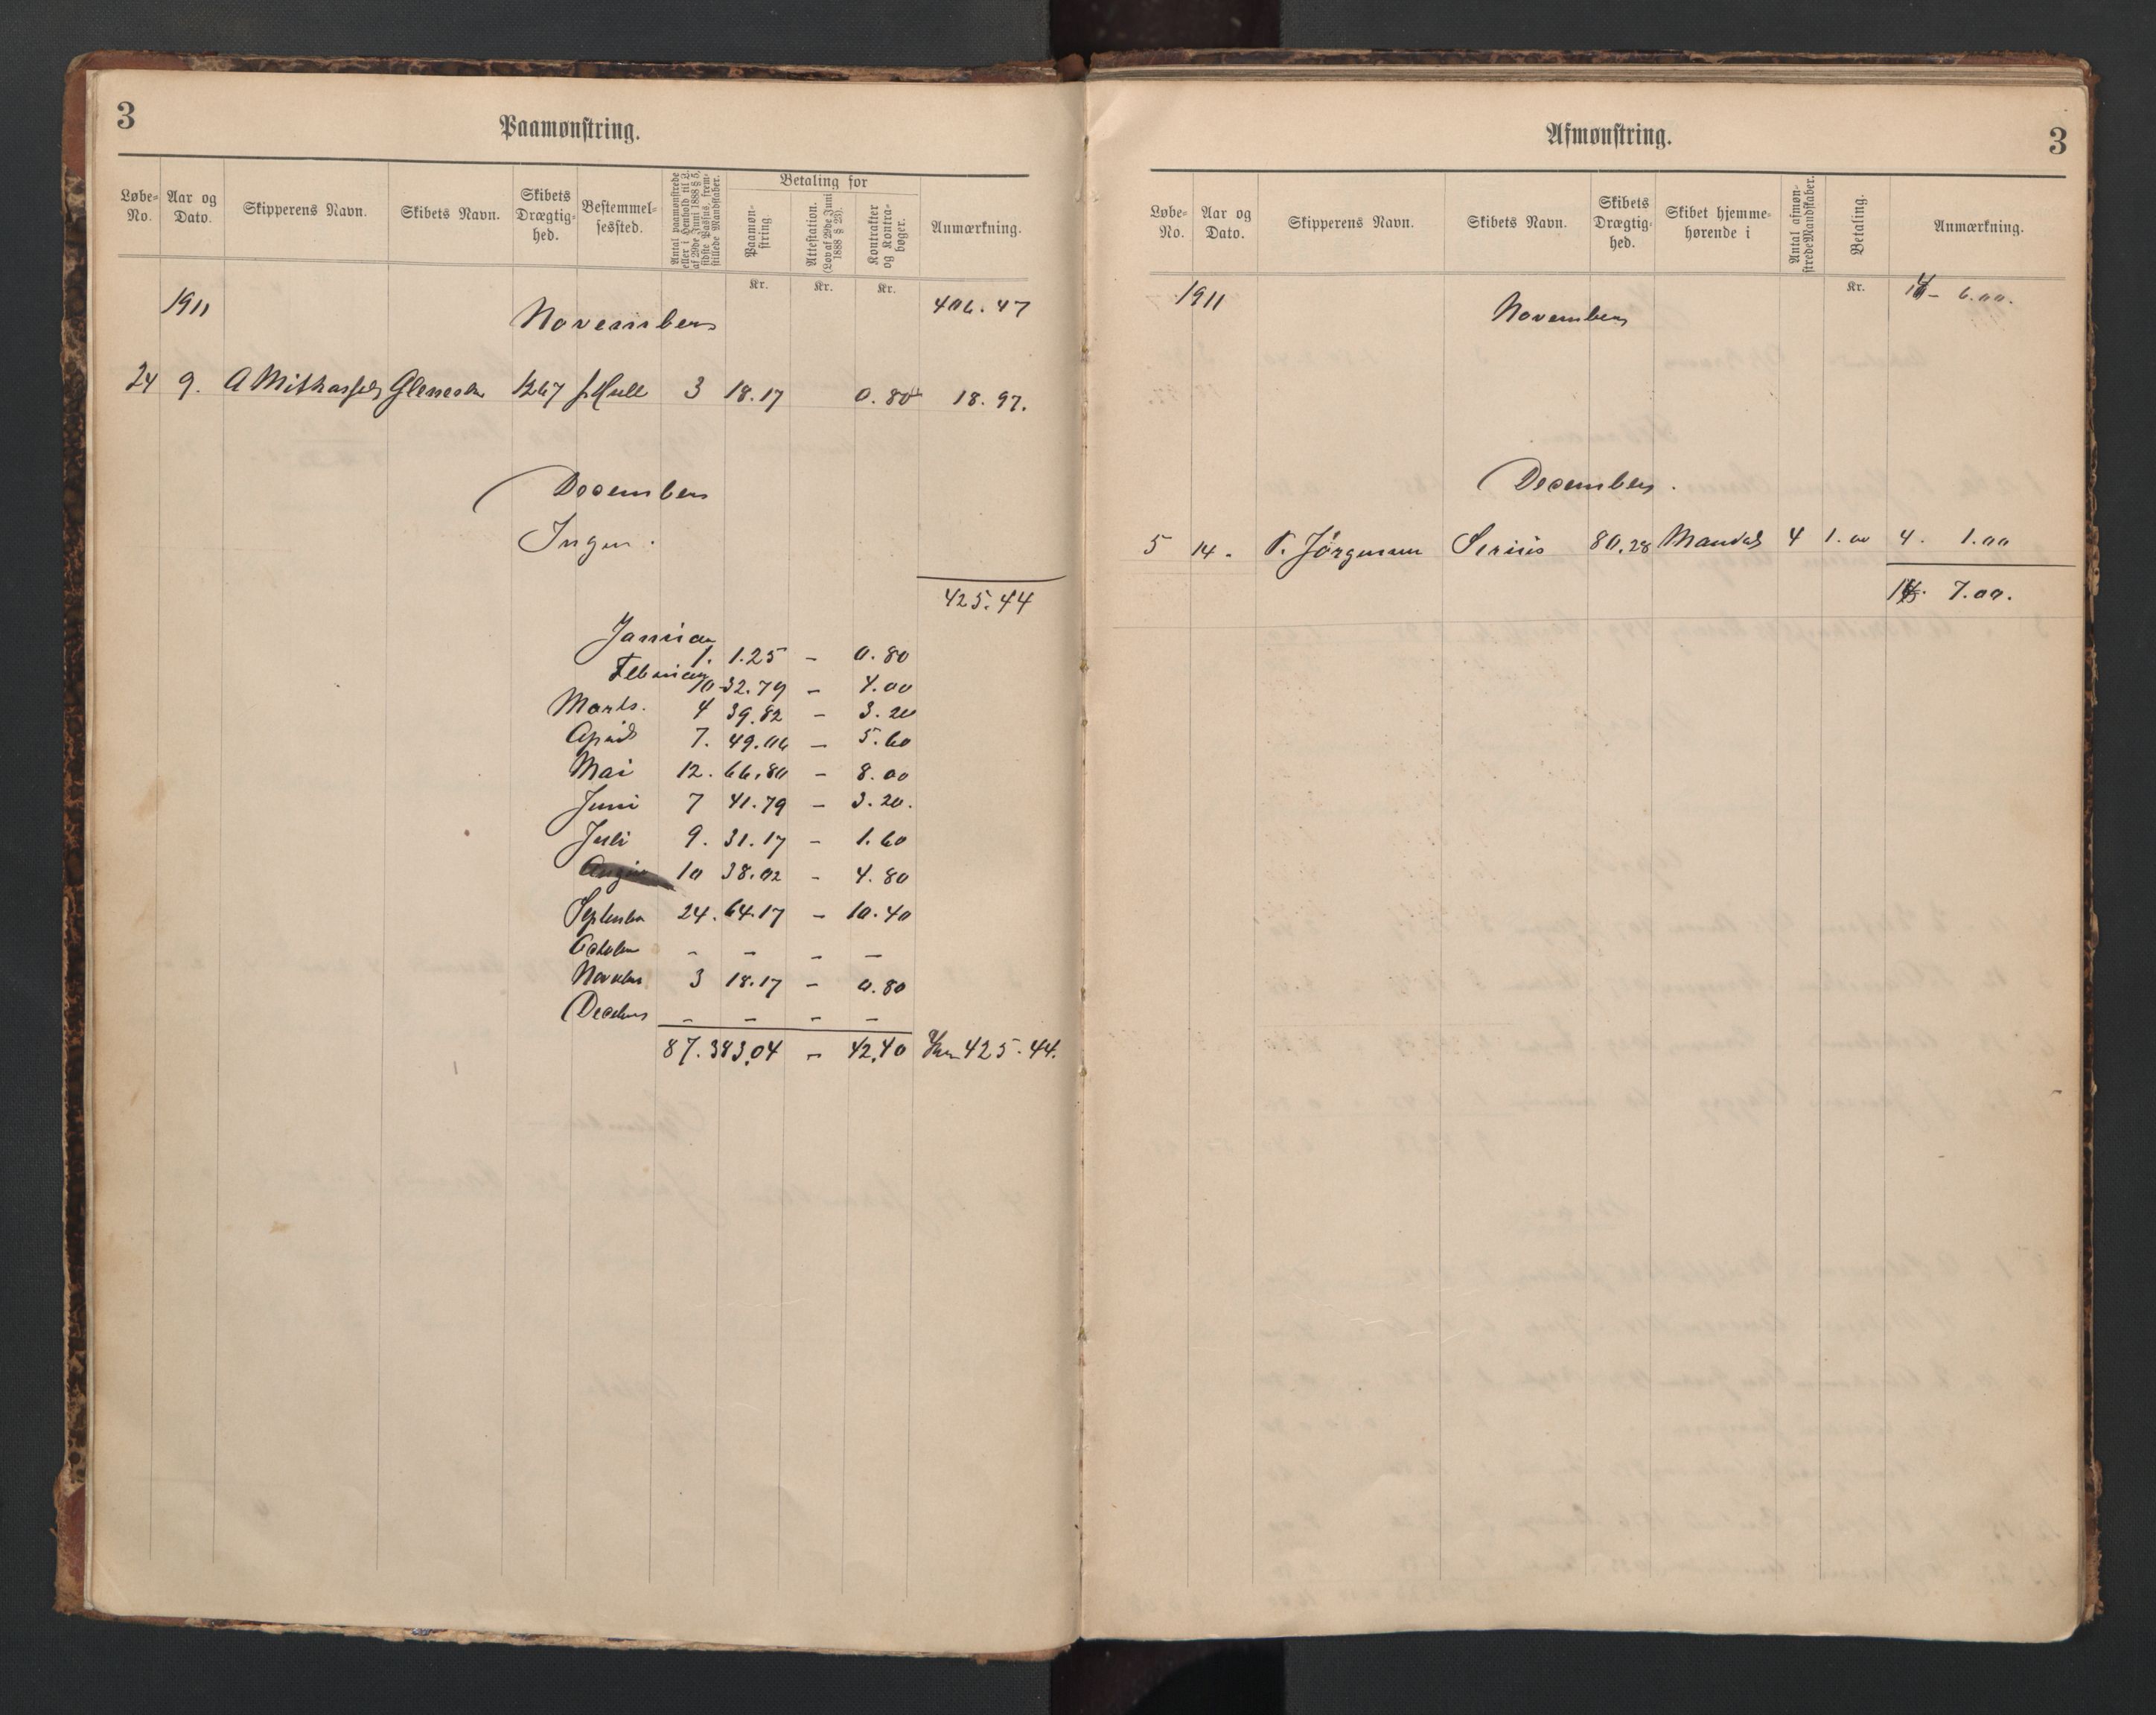 3
Paamønstring.
Løbe-No.
Aar og Dato.
Skipperens Navn.
Skibets Navn.
Skibets Drægtig-hed.
Bestemmel-sessted.
Antal paamønstrede eller i Henhold til L. af 29de Juni 1888 § 5, sidste Passus, frem-stillede Mandskaber.
Betaling for
Paamøn-string.
Attestation. (Lov af 29de Juni 1888 § 23).
Kontrakter og Kontra-bøger.
Anmærkning.
Kr. Kr. Kr.
1911 November 406.47
24 9. A 1267 Hull 3 18.17 0.80 18.97.
December
Ingen.
425.44
Januar 1. 1.25 - 0.80
Februar 10 32.79 - 4.00
Marts. 4 39.82 - 3.20
April 7. 49.06 - 5.60
Mai 12. 66.80 - 8.00
Juni 7 41.79 - 3.20.
Juli 9. 31.17 - 1.60
10 38.02 - 4.80
September 24. 64.17 - 10.40
October - - - -
November 3 18.17 - 0.80
December - - - -
87. 383,04 - 42,40 425.44.
3
Afmønstring.
Løbe-No.
Aar og Dato.
Skipperens Navn.
Skibets Navn.
Skibets Drægtig-hed.
Skibet hjemme-hørende i
Antal afmøn-strede Mandskaber.
Betaling.
Anmærkning.
Kr.
1911 November 6.00.
December.
5 14. T. Jörgensen Sirius 80,28 Mandal 4 1.00 4. 1.00
7.00.